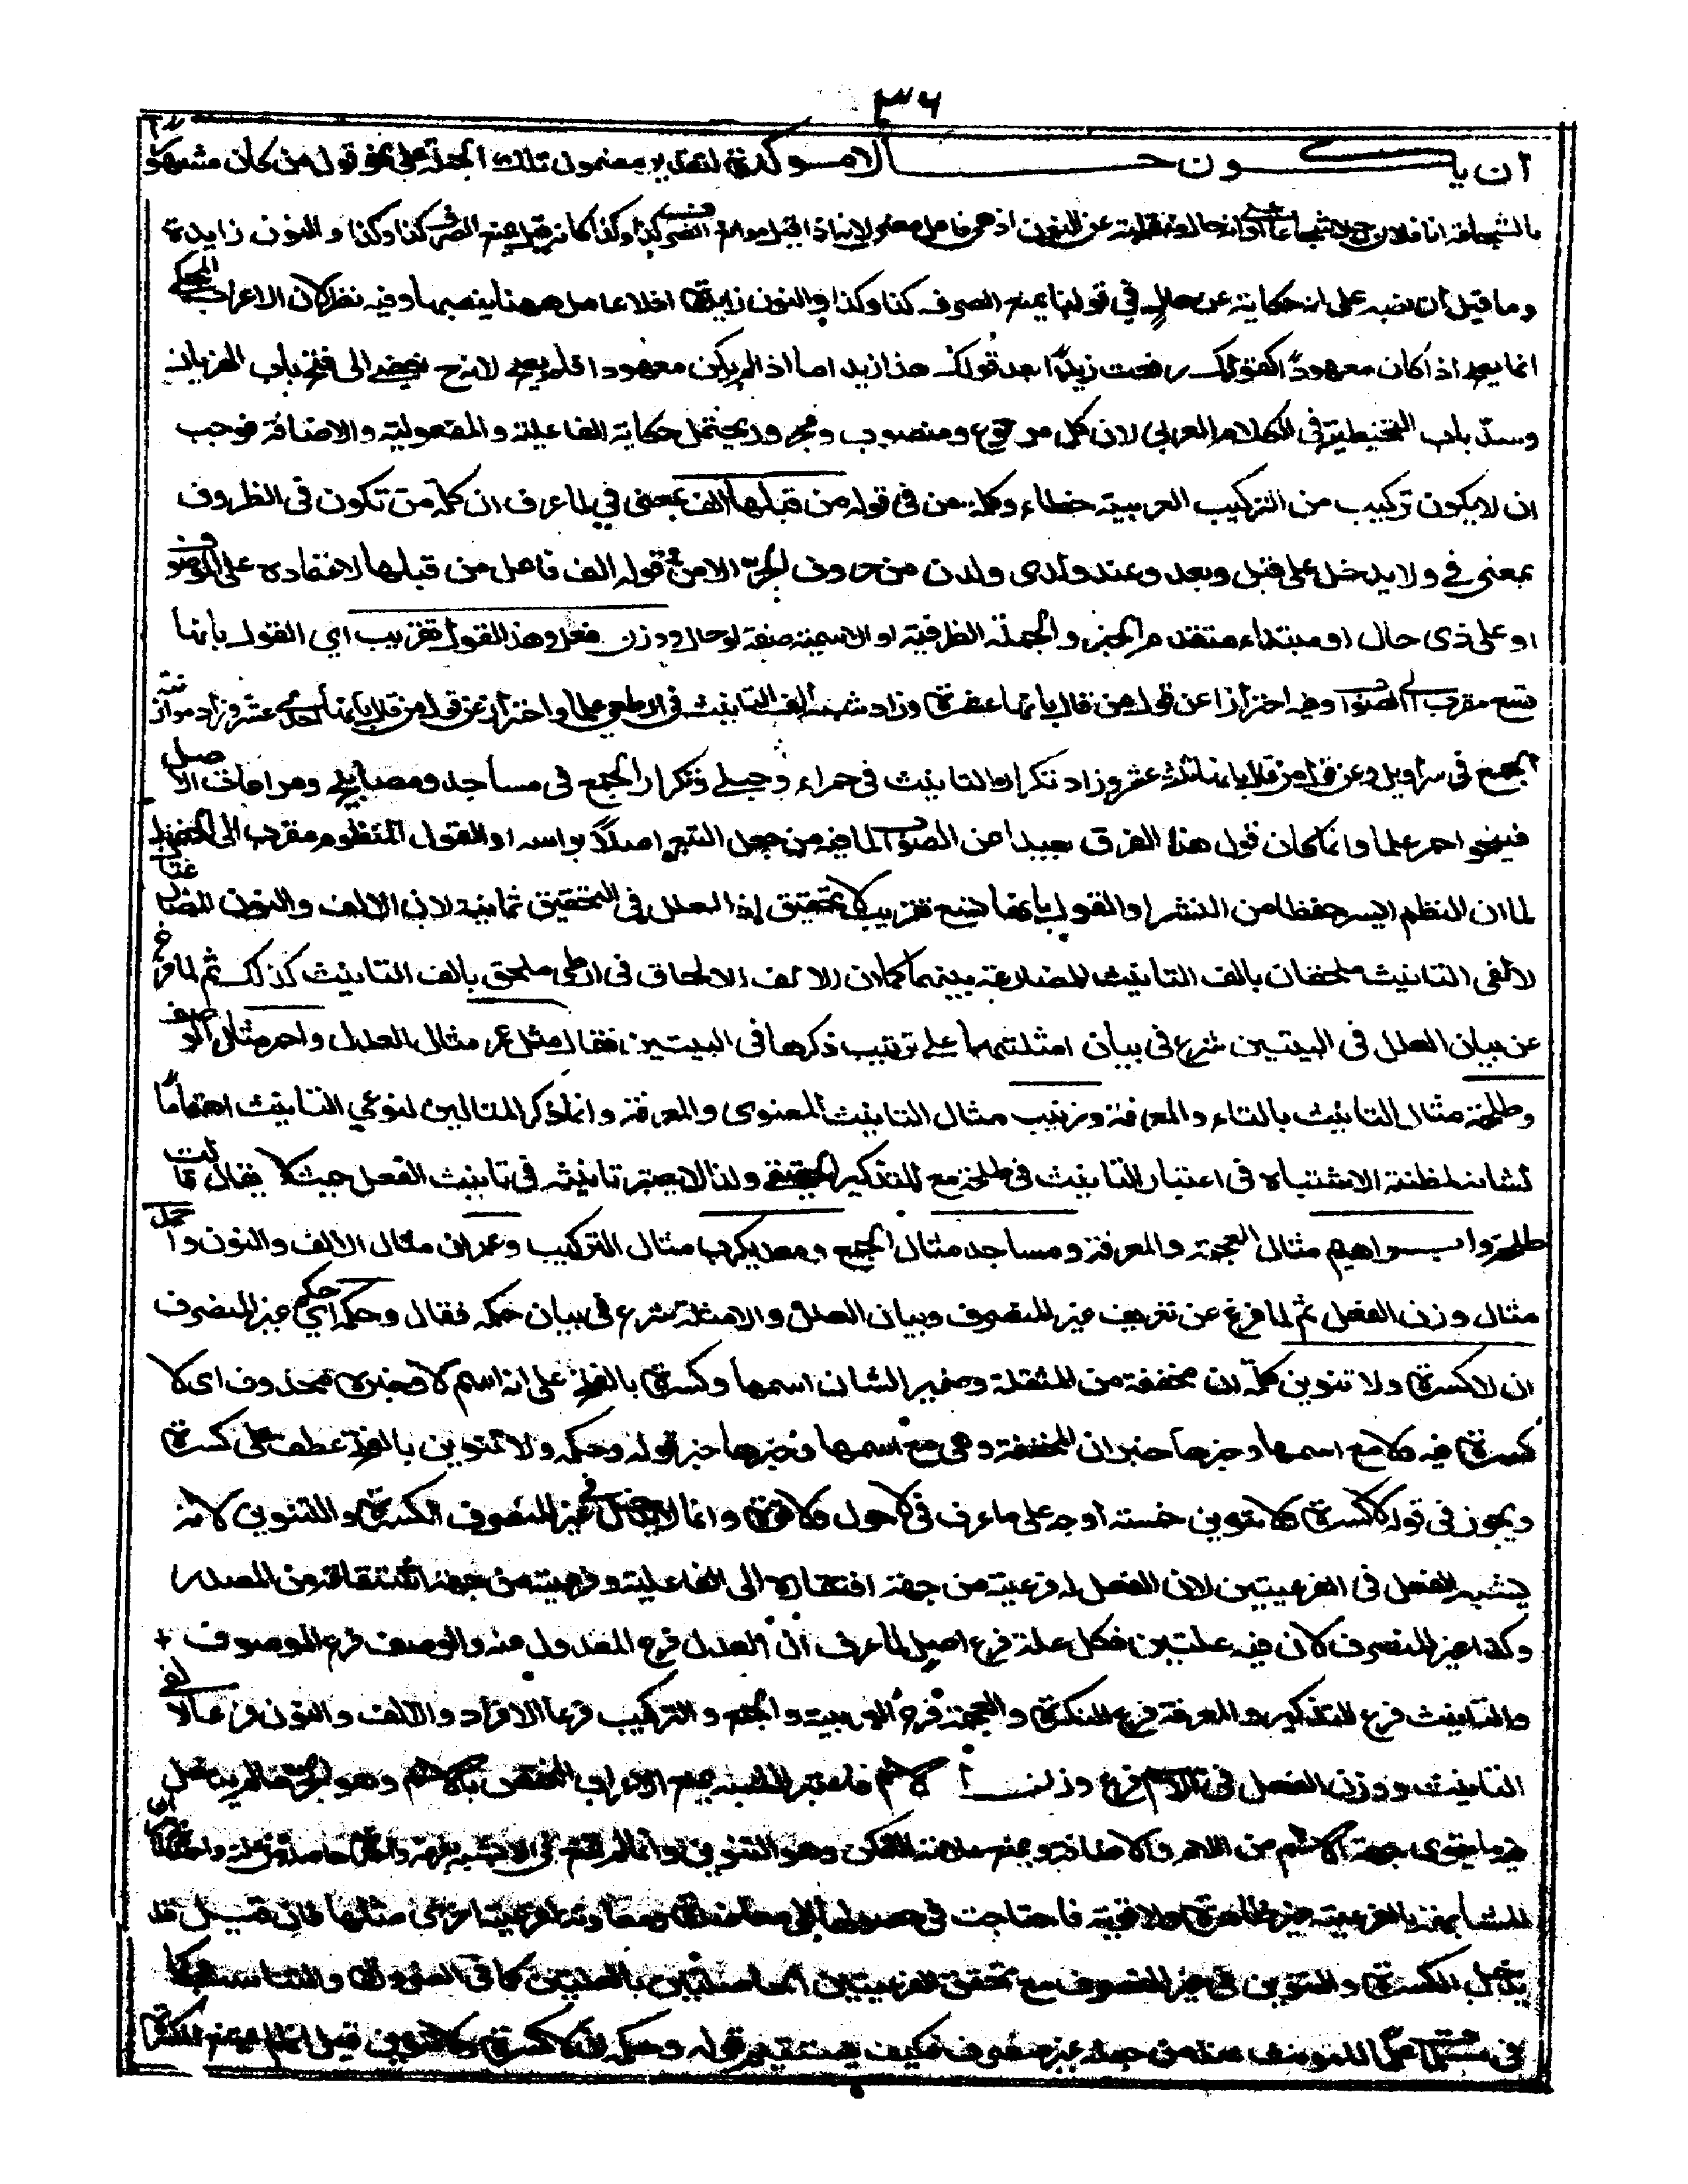 ٣٦
ان يكون حالا موكدة لتقدير مضمون تلك الجملة على نحو قول من كان مشهورا
بالشجاعة انا فلان والنون زايدة
وما قيل ان نصبه على انه حكاية عن حاله في قولنا يمنع الصرف كذا وكذا والنون زايدة اذ لا عامل ههنا ينصبها وفيه نظر لان الاعراب المحكي
انما يصح اذا كان معهودا كقولك رفعت زيدا بعد قولك هذا زيد اما اذا لم يكن معهودا فلم يصح لانه ح يفضي الى فتح باب الهزيان
وسد باب التخطية في الكلام العربي لان كل مرفوع ومنصوب ومجرور يحتمل حكاية الفاعلية والمفعولية والاضافة فوجب
ان لا يكون تركيب من التركيب العربية خطاء وكلمة من في قوله من قبلها الف بمعنى في لما عرف ان كلمة من تكون في الظروف
بمعنى في ولا يدخل على قبل وبعد وعند ولدى ولدن من حروف الجر الا من قوله الف فاعل من قبلها لاعتماده على الموصوف
او على ذى حال او مبتداء متقدم الخبر والجملة الظرفية او الاسمية صفة او حال ووزن فعل وهذا القول تقريب اي القول بانها
تسع مقرب الى الصواب وفيه احتراز عن قول من قال بانها عشرة وزاد شبه الف التانيث في ارطى علما واحتراز عن قول من قال بانها احد عشر وزاد موازنة
الجمع في سراويل وعن قول من قال بانها ثلث عشر وزاد تكرار التانيث في حمراء وحبلى وتكرار الجمع في مساجد ومصابيح ومراعات الاصل
في نحو احمر علما وانما كان قول هذا الفرق بعيدا من الصواب لما فيه من جعل التبع اصلا براسه او القول المنظوم مقرب الى الحفظ
لما ان النظم ايسر حفظا من النثر او القول بانها تسع تقريب لا تحقيق اذ العلل في التحقيق ثمانية لان الالف والنون المضارعتان
لالفي التانيث ملحقتان بالف التانيث للمضارعة بينهما كما ان الالف الالحاق في ارطى ملحق بالف التانيث كذلك ثم لما فرغ
عن بيان العلل في البيتين شرع في بيان امثلتها على ترتيب ذكرها في البيتين فقال مثل عمر مثال العدل واحمر مثال الوصف
وطلحة مثال التانيث بالتاء والمعرفة وزينب مثال التانيث المعنوى والمعرفة وانما ذكر المثالين لنوعي التانيث اهتماما
لشانه لمظنة الاشتباه في اعتبار التانيث في طلحة مع التذكير الحقيقي ولذا لا يعتبر تانيثه في تانيث الفعل حيث لا يقال قالت
طلحة وابراهيم مثال العجمة والمعرفة ومساجد مثال الجمع ومعديكرب مثال التركيب وعمران مثال الالف والنون واحمد
مثال وزن الفعل ثم لما فرغ عن تعريف غير المنصرف وبيان العلل والامثلة شرع في بيان حكمه فقال وحكمه اي حكم غير المنصرف
ان لا كسرة ولا تنوين كلمة ان مخففة من المثقلة وضمير الشان اسمها وكسرة بالفتح على انه اسم لا وخبره محذوف اى لا
كسرة فيه ولا مع اسمها وخبرها خبر ان المخففة وهي مع اسمها وخبرها خبر قوله وحكمه ولا تنوين بالفتح عطف على كسرة
ويجوز في قوله لا كسرة ولا تنوين خمسة اوجه على ما عرف في لا حول ولا قوة وانما لا يدخل في غير المنصرف الكسرة والتنوين لانه
يشبه الفعل في الفرعيتين لان الفعل له فرعية من جهة افتقاره الى الفاعلية وفرعية من جهة اشتقاقه من المصدر
وكذا غير المنصرف لان فيه علتين فكل علة فرع اصل لما عرف ان العدل فرع المعدول عنه والوصف فرع الموصوف
والتانيث فرع التذكير والمعرفة فرع النكرة والعجمة فرع العربية والجمع والتركيب فرعا الافراد والالف والنون فرعا لالفي
التانيث ووزن الفعل في الاسم فرع وزن الاسم فاعتبر الشبه بمنع الاعراب المختص بالاسم وهو الجر ما لم يدخل
فيه ما يقوى جهة الاسم من اللام والاضافة ويمنع علامة التمكن وهو التنوين
للمشابهة بالفرعية غير ظاهرة ولا قوية فاحتاجت في حصولها الى معاضدة ومعاونة فرعية اخرى مثلها فان قيل قد
يدخل الكسرة والتنوين في غير المنصرف مع تحقق الفرعيتين الحاصلتين بالعلتين كما في الضرورة والتناسب
عند من جعله غير منصرف فكيف يستقيم قوله وحكمه ان لا كسرة ولا تنوين قيل